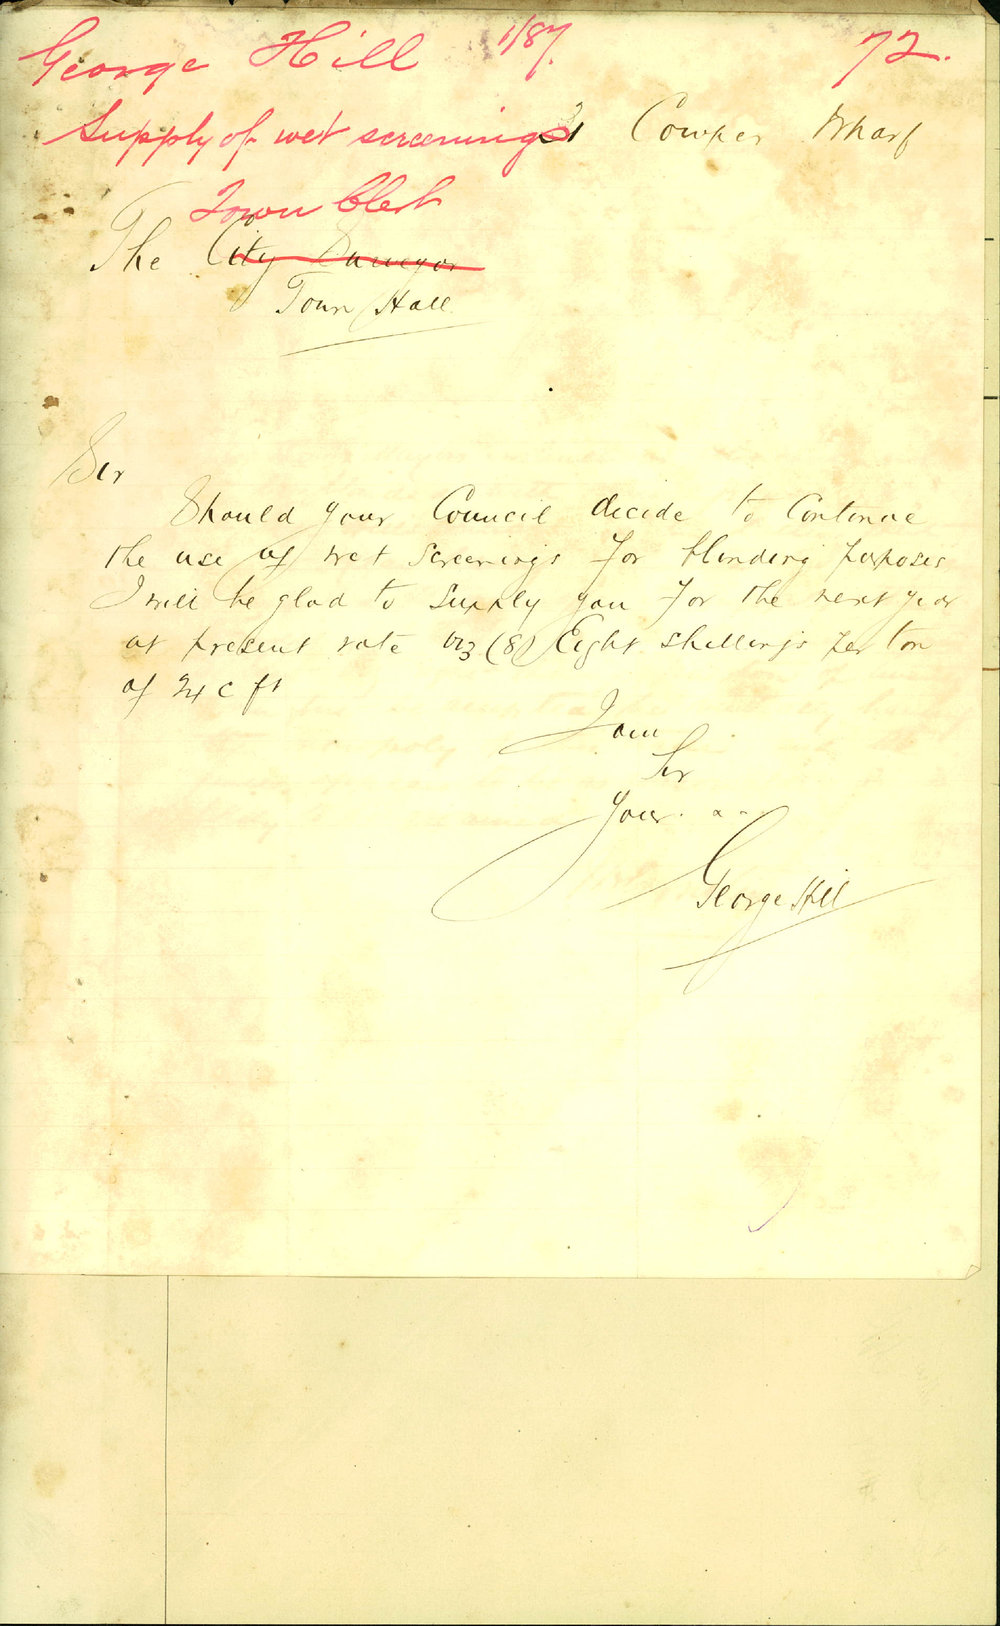 George Hill 1/87. 72.
Supply of wet screenings Cowper Wharf
Town Clerk
The City Surveyor
Town Hall
Sir
Should your Council decide to Continue
the use of wet screenings for blinding purposes
I will be glad to supply you for the next year
at present rate viz (8) Eight shillings per ton
of 24 c ft
I am
Sir
Your
George Hill